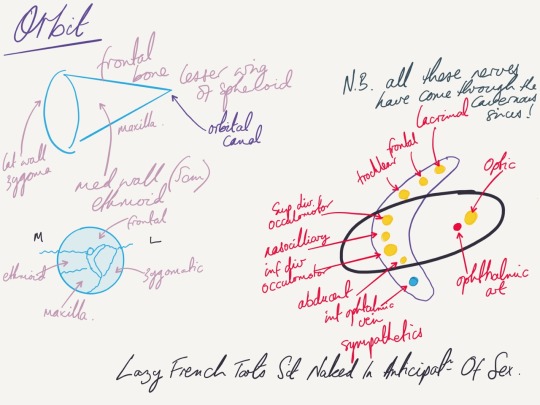 Orbit
frontal
bone
lesser wing
of sphenoid
maxilla.
orbital
canal
lat wall
zygoma
med wall (5cm)
ethmoid
frontal
M
L
ethmoid
zygomatic
maxilla.
N.B. all these nerves
have come through the
cavernous
sinus!
lacrimal
frontal
trochlear
Optic
Sup div.
occulomotor
nasocilliary
inf div
occulomotor
abducent
inf ophtalmic
vein
sympathetics
ophthalmic
art
Lazy French Tarts Sit Naked In Anticipatⁿ Of Sex.